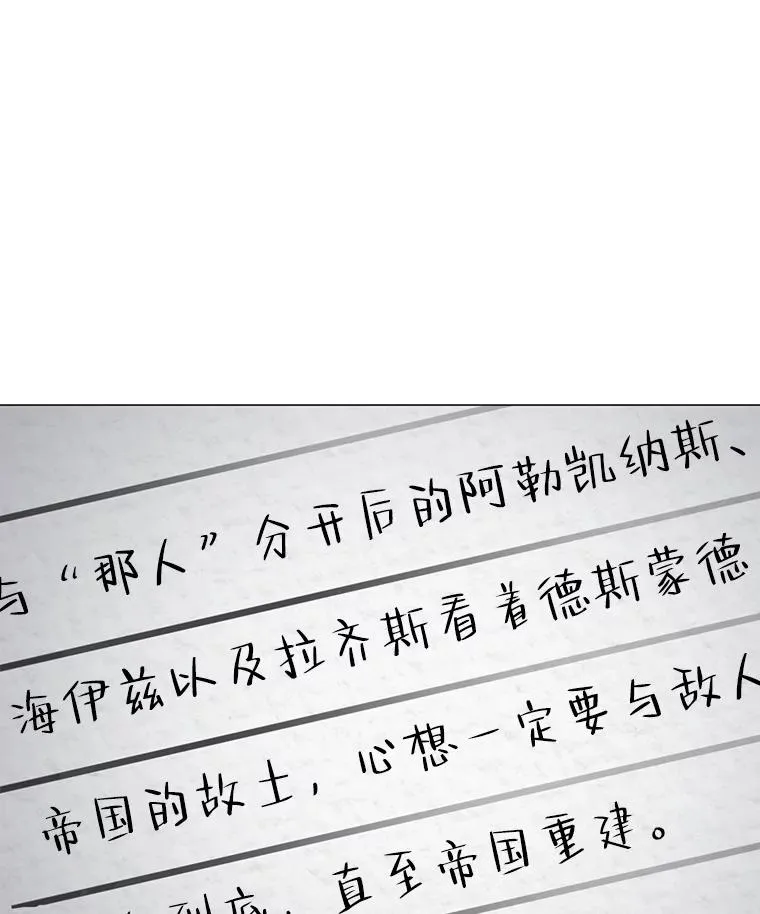 与“那人”分开后的阿勒凯纳斯、
海伊兹以及拉齐斯看着德斯蒙德
帝国的故土，心想一定要与敌人
到底，直至帝国重建。